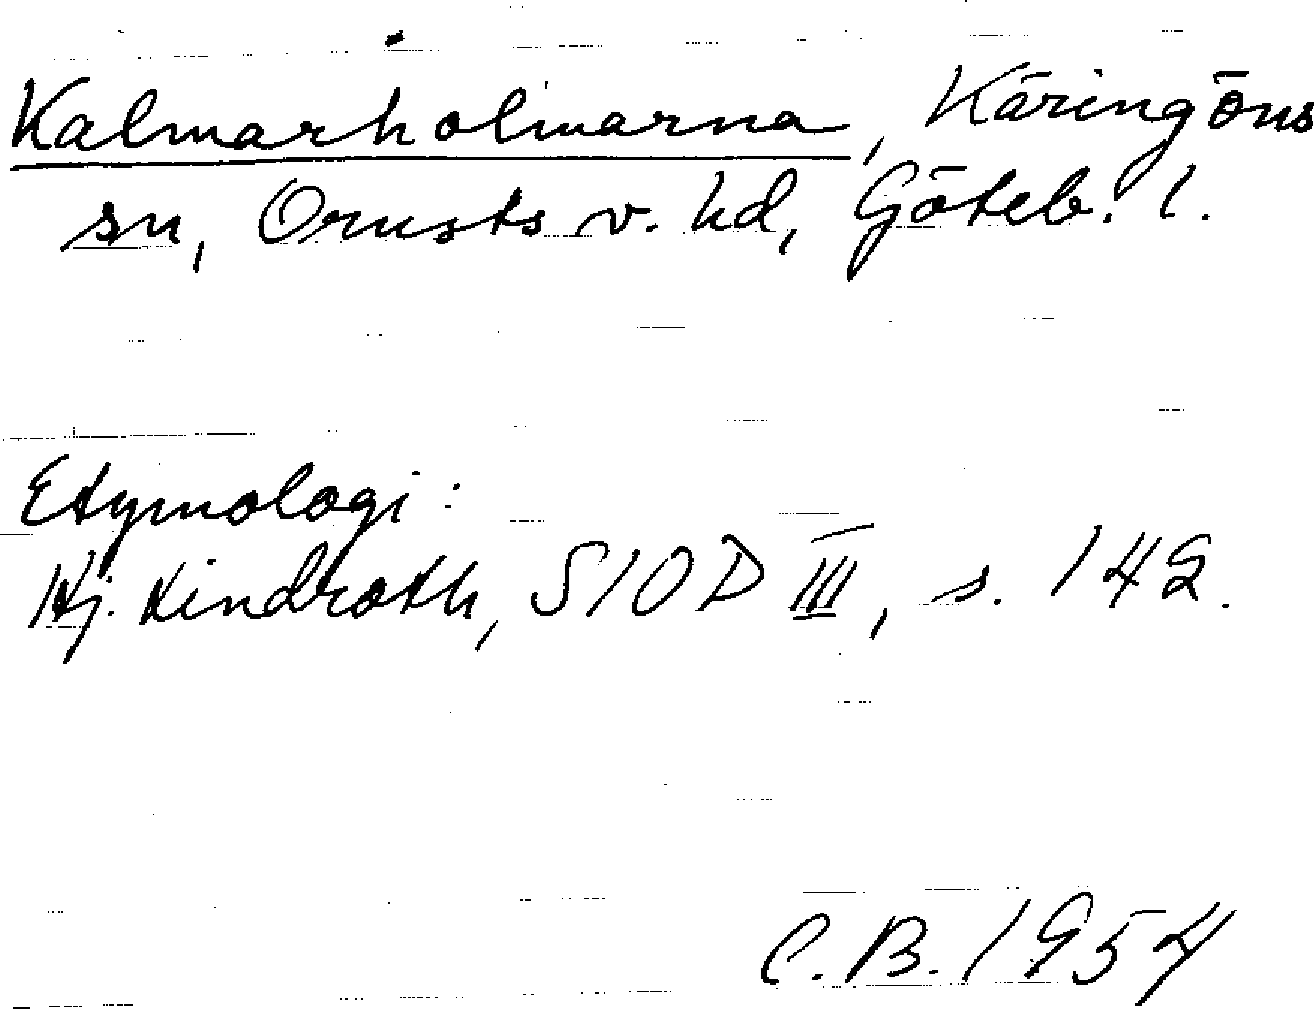 Kalmarholmarna, Käringöns
sn, Orusts v. hd, Göteb. l.
Etymologi:
Hj. Lindroth, SIOD III, s. 142.
C. B. 1954